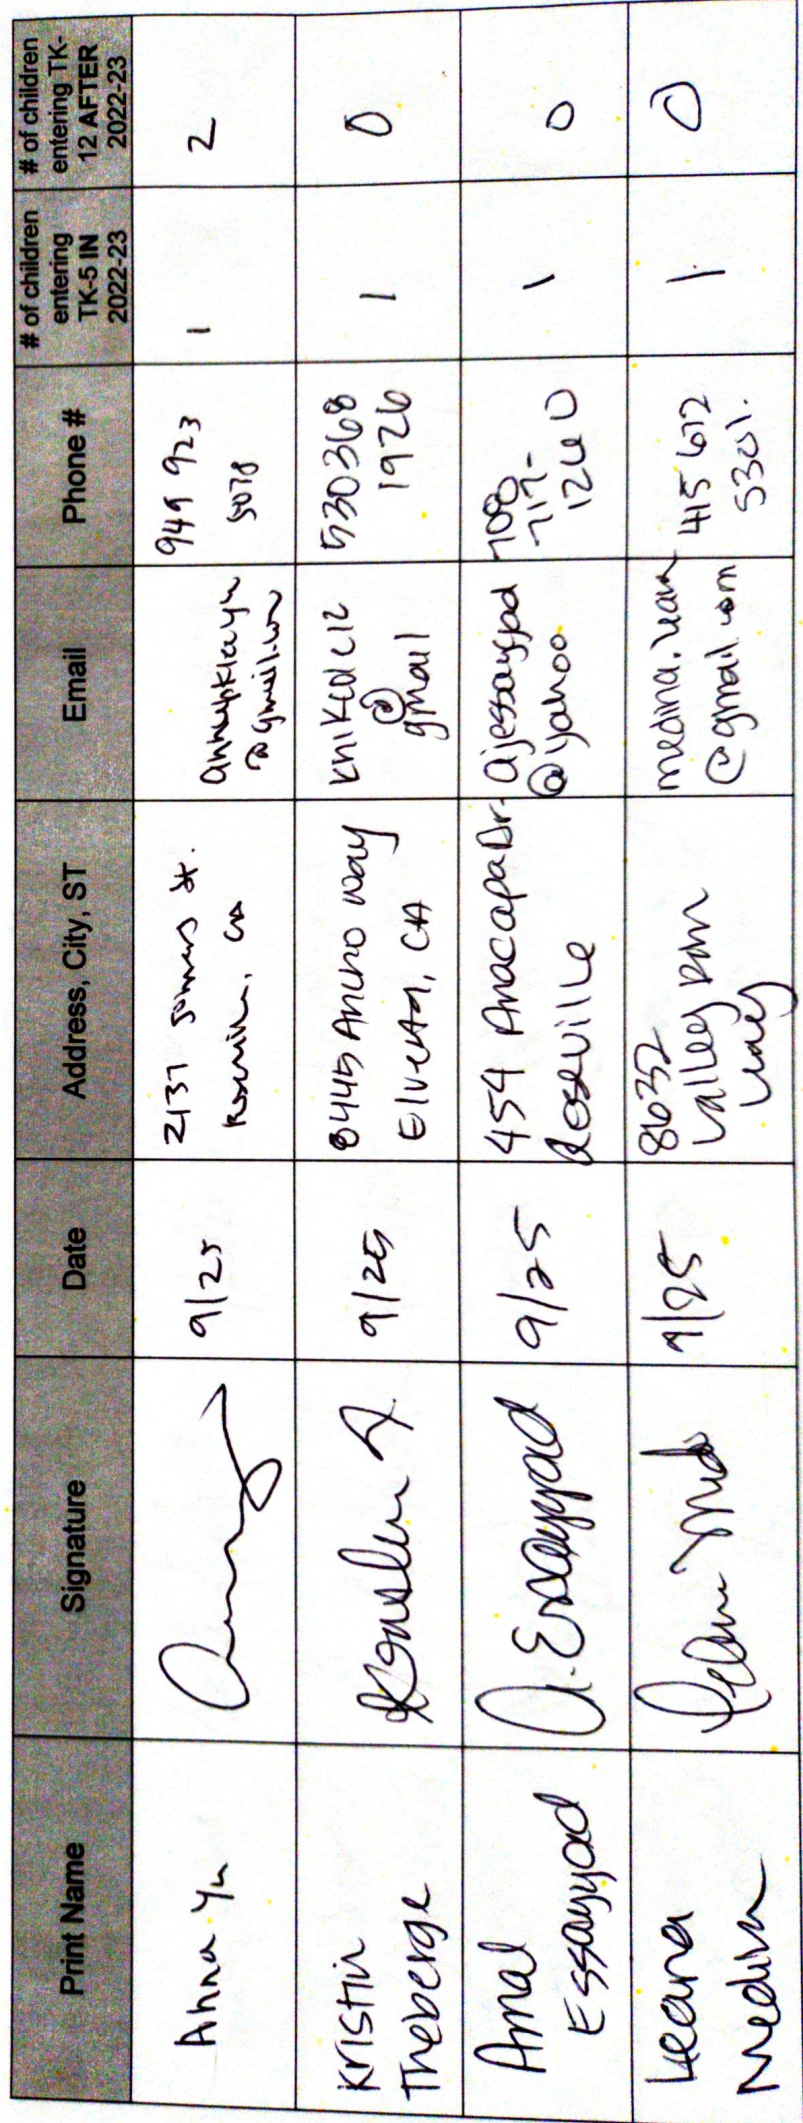 Print Name
Signature
Date
Address, City, ST
Email
Phone #
# of children
entering
TK-5 IN
2022-23
# of children
entering TK-
12 AFTER
2022-23
Anna Yu
9/25
2137
St.
@gmail.com
949 923
5078
1
2
Kristin
Theberge
9/25
8445 Ancho Way
Elverta, CA
@
gmail
530 368
1926
1
0
Amal
Essayyad
A. Essayyad
9/25
454 Anacapa Dr.
Roseville
ajessayyad
@yahoo
719-
1240
1
0
Leana
Medina
9/25
Valley
Way
medina.lean
@gmail.com
415 672
5301.
1
0